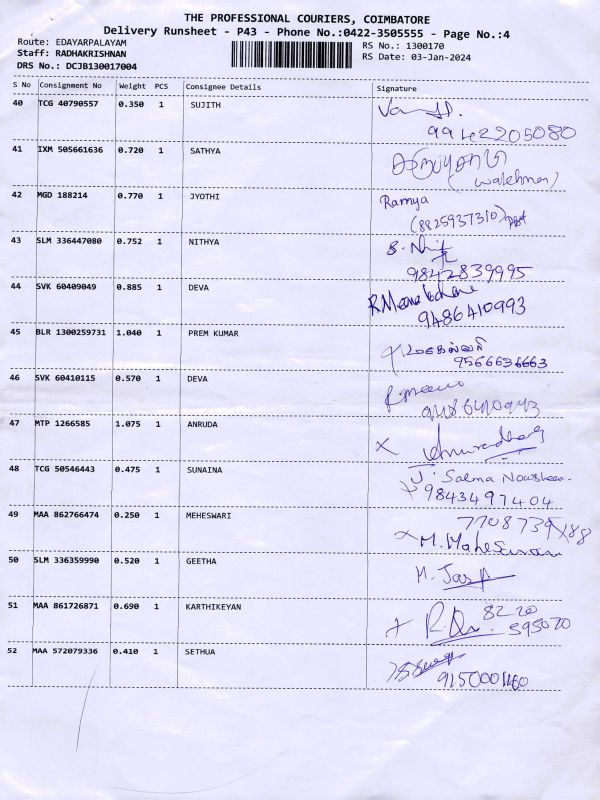 THE PROFESSIONAL COURIERS, COIMBATORE
Delivery Runsheet - P43 - Phone No.:0422-3505555 - Page No.:4
Route: EDAYARPALAYAM
Staff: RADHAKRISHNAN
DRS No.: DCJB130017004
RS No.: 1300170
RS Date: 03-Jan-2024
S No Consignment No Weight PCS Consignee Details Signature
40 TCG 40790557 0.350 1 SUJITH
9942205080
41 IXM 505661636 0.720 1 SATHYA
(watchman)
42 MGD 188214 0.770 1 JYOTHI Ramya
(8825937310)
43 SLM 336447080 0.752 1 NITHYA
9842839995
44 SVK 60409049 0.885 1 DEVA
9486410993
45 BLR 1300259731 1.040 1 PREM KUMAR
9566636663
46 SVK 60410115 0.570 1 DEVA R.Meena
47 MTP 1266585 1.075 1 ANRUDA
48 TCG 50546443 0.475 1 SUNAINA J. Salma Nowsheen
9843497404
49 MAA 862766474 0.250 1 MEHESWARI
M. Maheswari
50 SLM 336359990 0.520 1 GEETHA
51 MAA 861726871 0.690 1 KARTHIKEYAN 8220
595070
52 MAA 572079336 0.410 1 SETHUA
9150001460